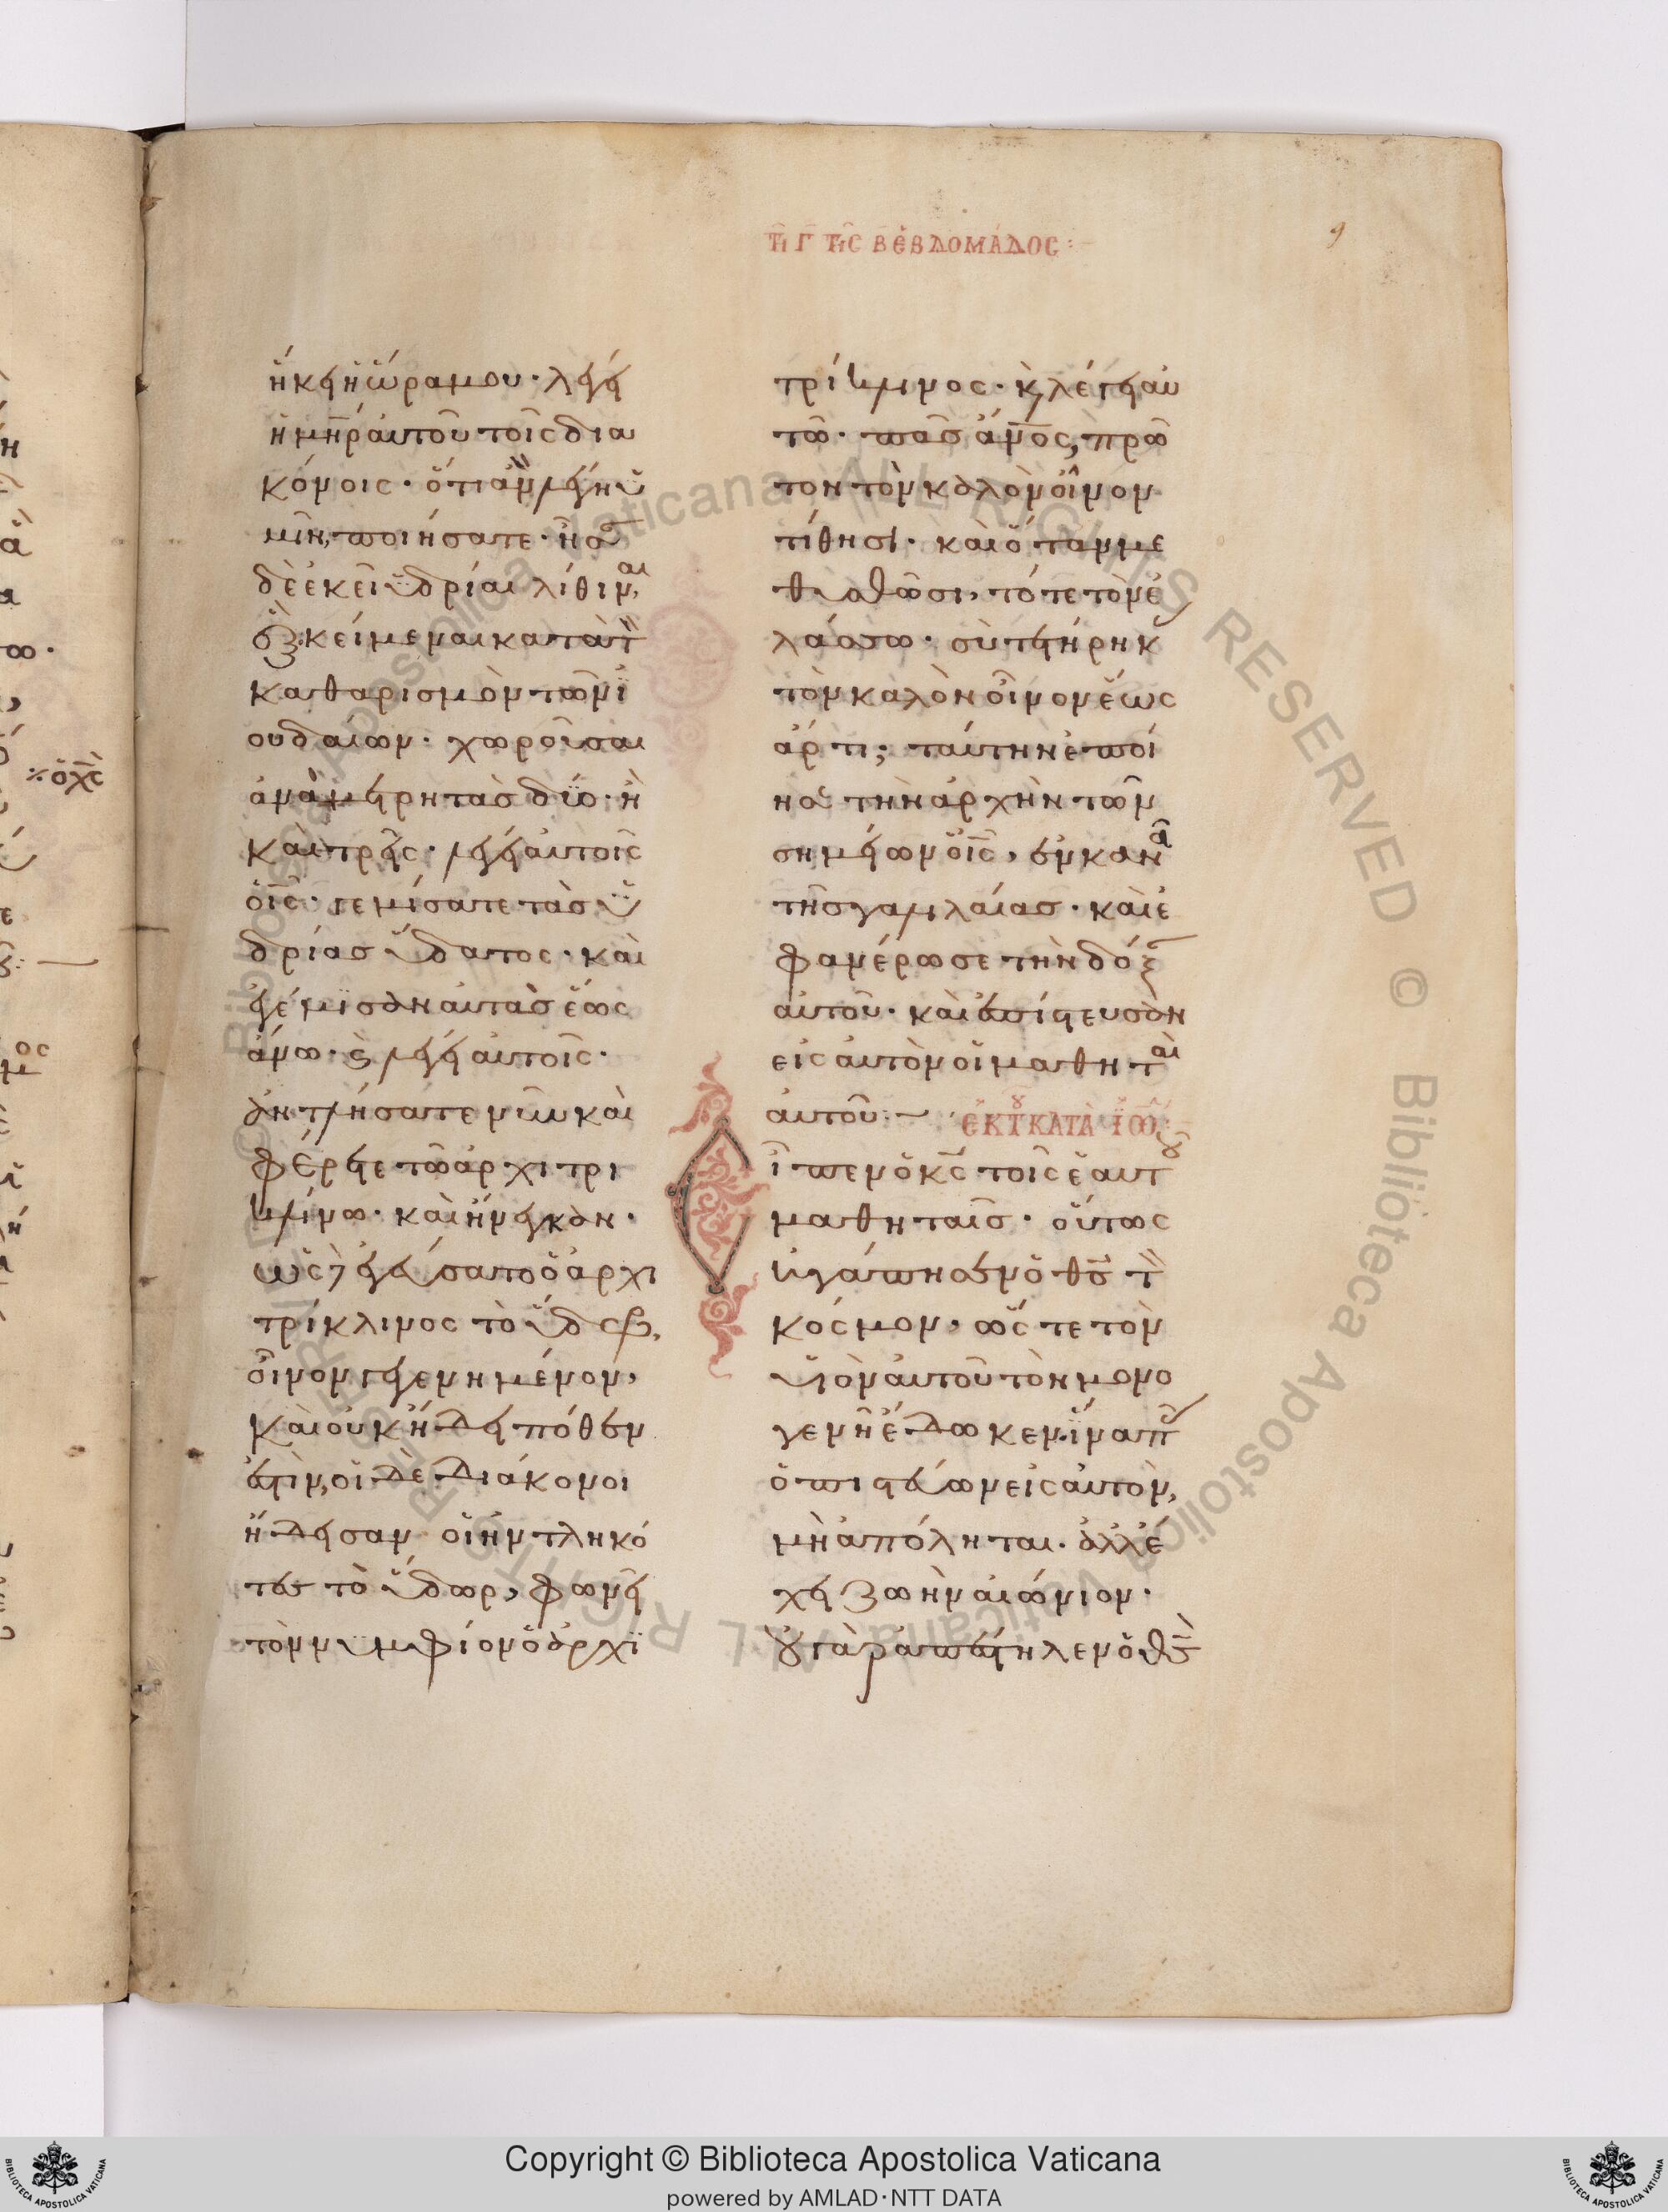 τῆ Γ τῆς Β ἑβδομάδος :
9
ἥκει ἡ ὥρα μου · λέγει
ἡ μηρ αὐτοῦ τοῖς δια
κόνοις · ὅτι ἂν λέγη ὑ
μῖν, ποιήσατε · ἦσαν
δὲ ἐκεῖ ὑδρίαι λίθιναι
ἓξ κείμεναι κατὰ τὸν
καθαρισμὸν τῶν ἰ
ουδαίων · χωροῦσαι
ἀνὰ μετρητὰς δύο · ἢ
καὶ τρεῖς · λέγει αὐτοῖς
ὁ ις · γεμίσατε τὰς ὑ
δρίας ὕδατος · καὶ
ἐγέμισαν αὐτὰς ἕως
ἄνω · καὶ λέγει αὐτοῖς ·
ἀντλήσατε νῦν καὶ
φέρετε τῶ ἀρχιτρι
κλίνω · καὶ ἤνεγκαν ·
ὡς δὲ ἐγεύσατο ὁ ἀρχι
τρίκλινος τὸ ὕδωρ,
οἶνον γεγενημένον,
καὶ οὐκ ἤδει πόθεν
ἐστίν, οἱ δὲ διάκονοι
ἤδεισαν οἱ ἠντληκό
τες τὸ ὕδωρ, φωνεῖ
τὸν νυμφίον ὁ ἀρχι
τρίκλινος · καὶ λέγει αὐ
τῶ · πᾶς ἄνος, πρῶ
τον τὸν καλὸν οἶνον
τίθησι · καὶ ὅταν με
θυσθῶσι, τότε τὸν ἐ
λάσσω · σὺ τετήρηκας
τὸν καλὸν οἶνον ἕως
ἄρτι ; ταύτην ἐποί
ησε τὴν ἀρχὴν τῶν
σημείων ὁ ις, ἐν κανᾶ
τῆς γαλιλαίας · καὶ ἐ
φανέρωσε τὴν δόξαν
αὐτοῦ · καὶ ἐπίστευσαν
εἰς αὐτὸν οἱ μαθηταὶ
αὐτοῦ :— ἐκ τοῦ κατὰ ἰω
Ειπεν ὁ κς τοῖς ἑαυτοῦ
μαθηταῖς · οὕτως
ἠγάπησεν ὁ θς τὸν
κόσμον, ὥστε τὸν
υἱὸν αὐτοῦ τὸν μονο
γενῆ ἔδωκεν. ἵνα πᾶς
ὁ πιστεύων εἰς αὐτὸν,
μὴ ἀπόληται · ἀλλ' ἔ
χει ζωὴν αἰώνιον ·
οὐ γὰρ ἀπέστειλεν ὁ θς